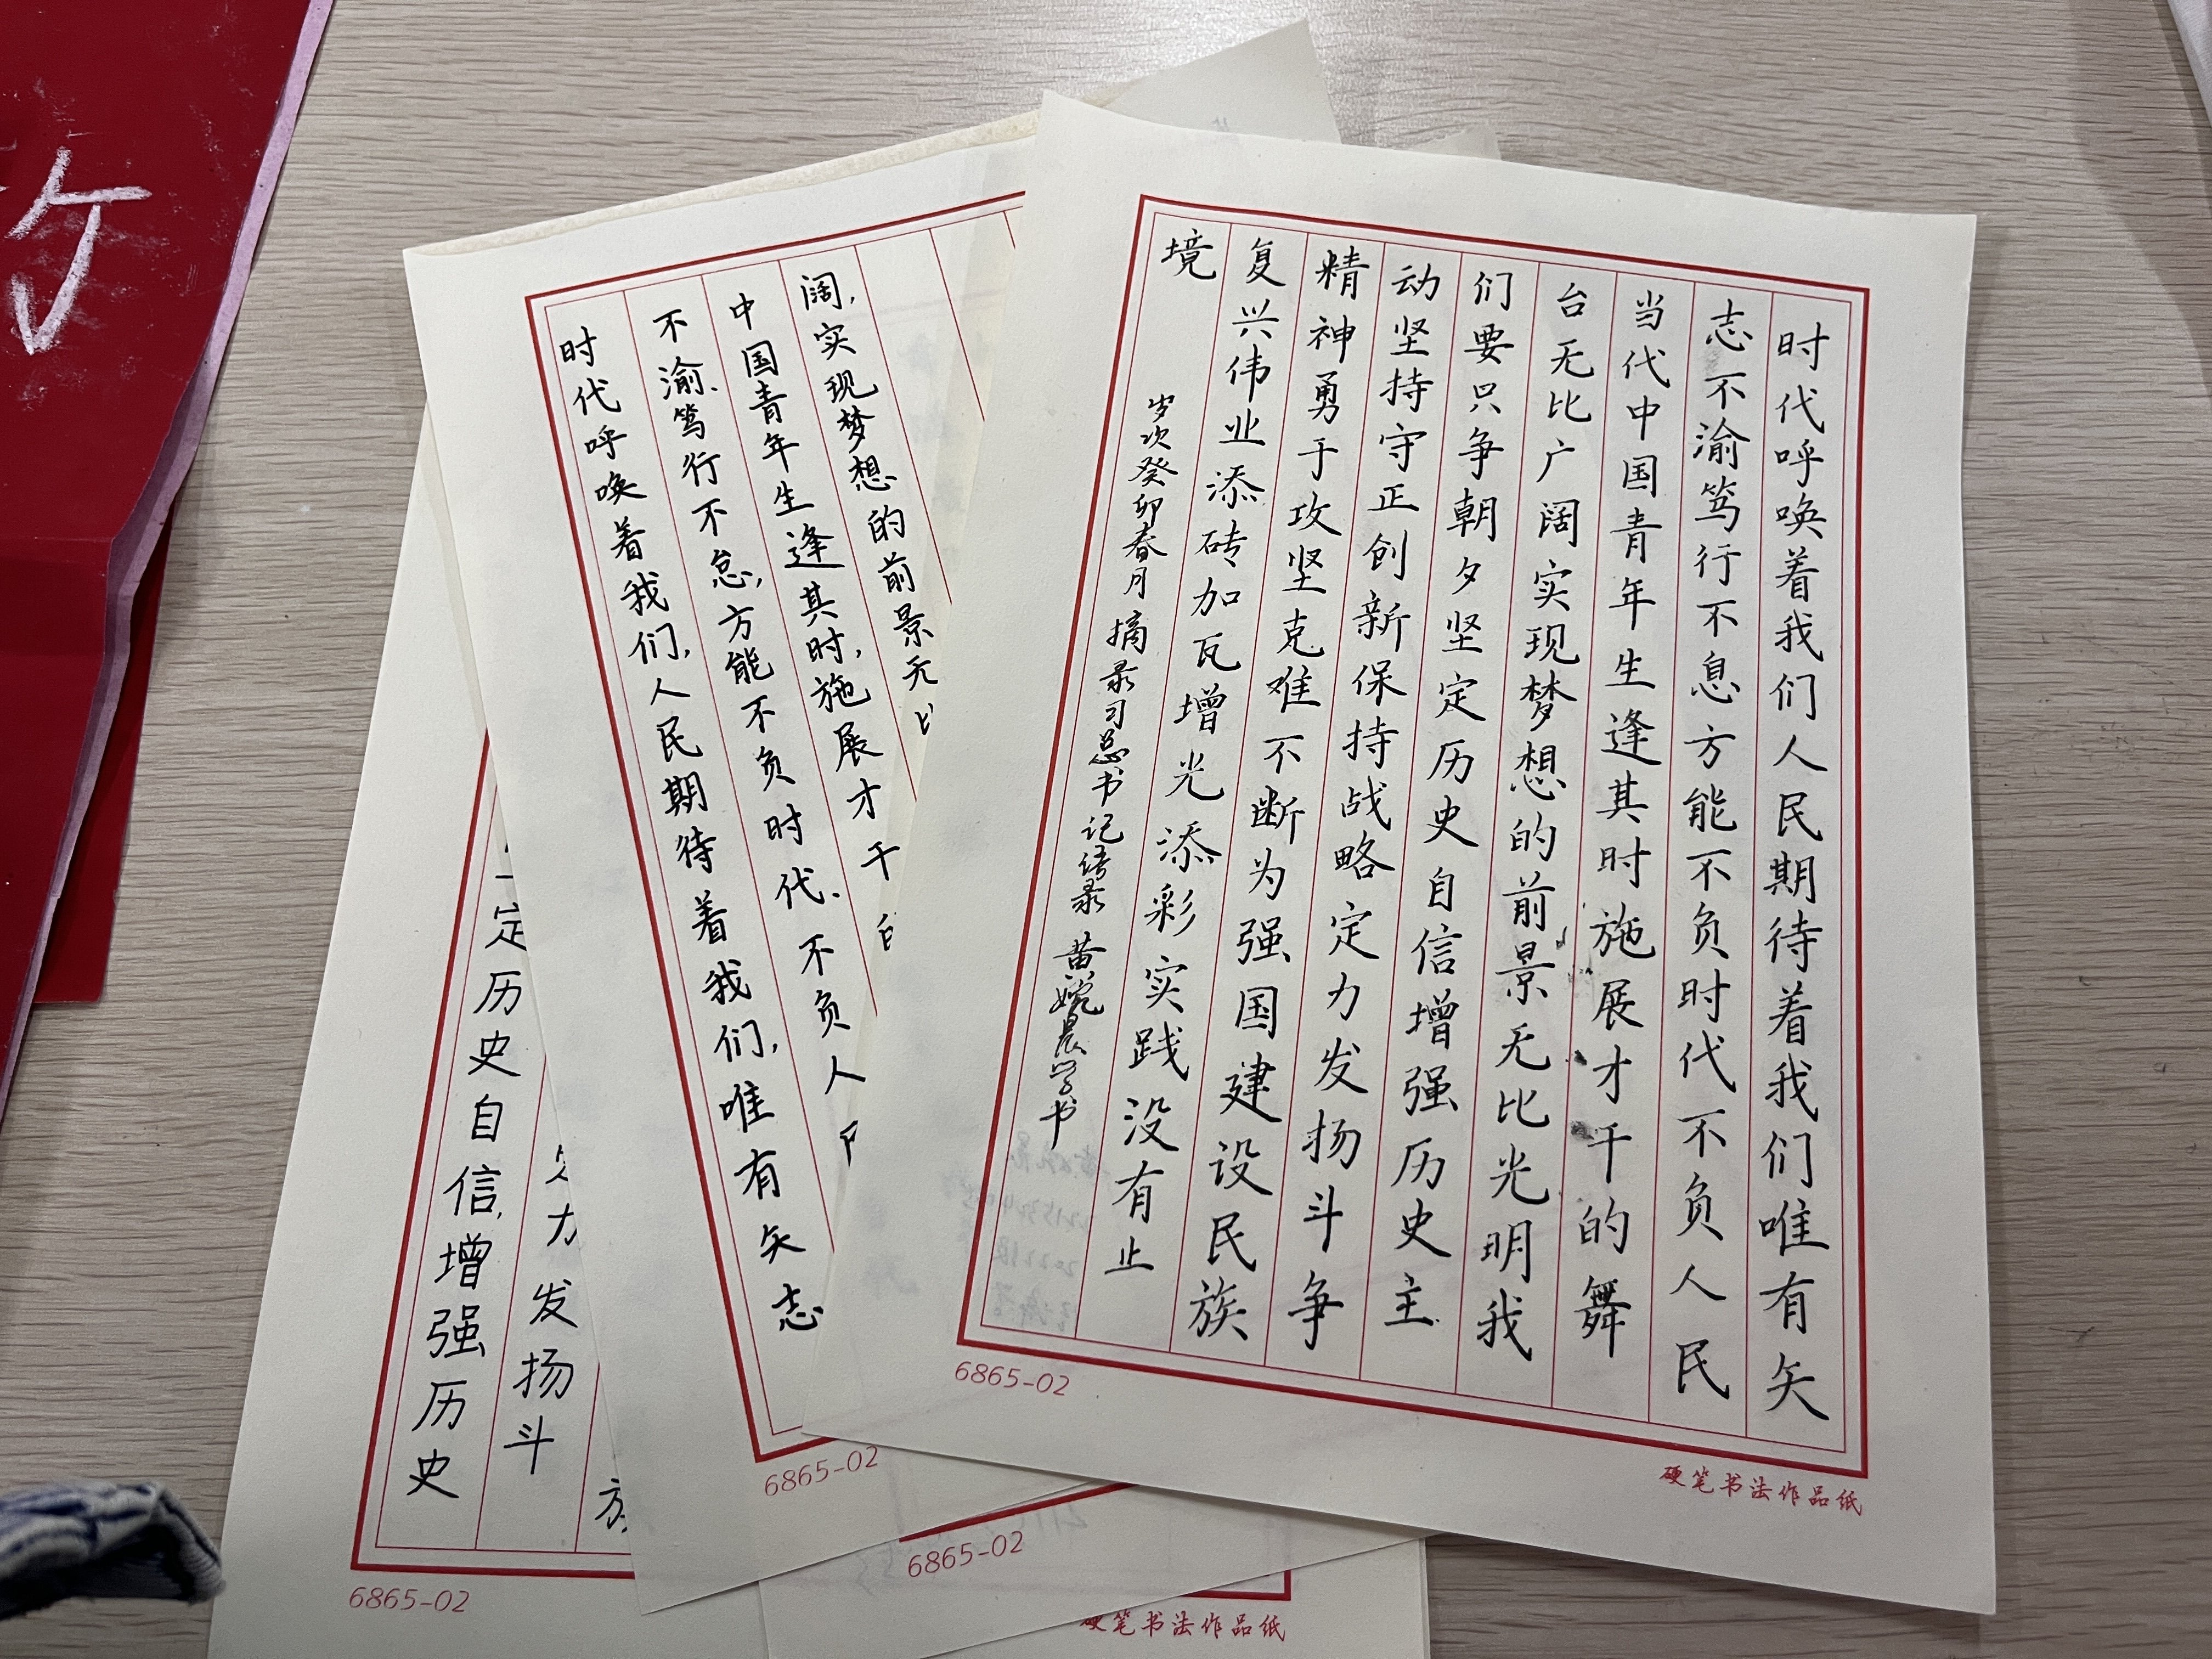 时代呼唤着我们人民期待着我们唯有矢
志不渝笃行不息方能不负时代不负人民
当代中国青年生逢其时施展才干的舞
台无比广阔实现梦想的前景无比光明我
们要只争朝夕坚定历史自信增强历史主
动坚持守正创新保持战略定力发扬斗争
精神勇于攻坚克难不断为强国建设民族
复兴伟业添砖加瓦增光添彩实践没有止
境
岁次癸卯春月摘录习总书记语录 黄婉晨学书
6865-02
硬笔书法作品纸
时代呼唤着我们,人民期待着我们,唯有矢志
不渝、笃行不怠,方能不负时代、不负人
中国青年生逢其时,施展才干
阔,实现梦想的前景无
6865-02
定历史自信,增强历史
力发扬斗
6865-02
6865-02
硬笔书法作品纸